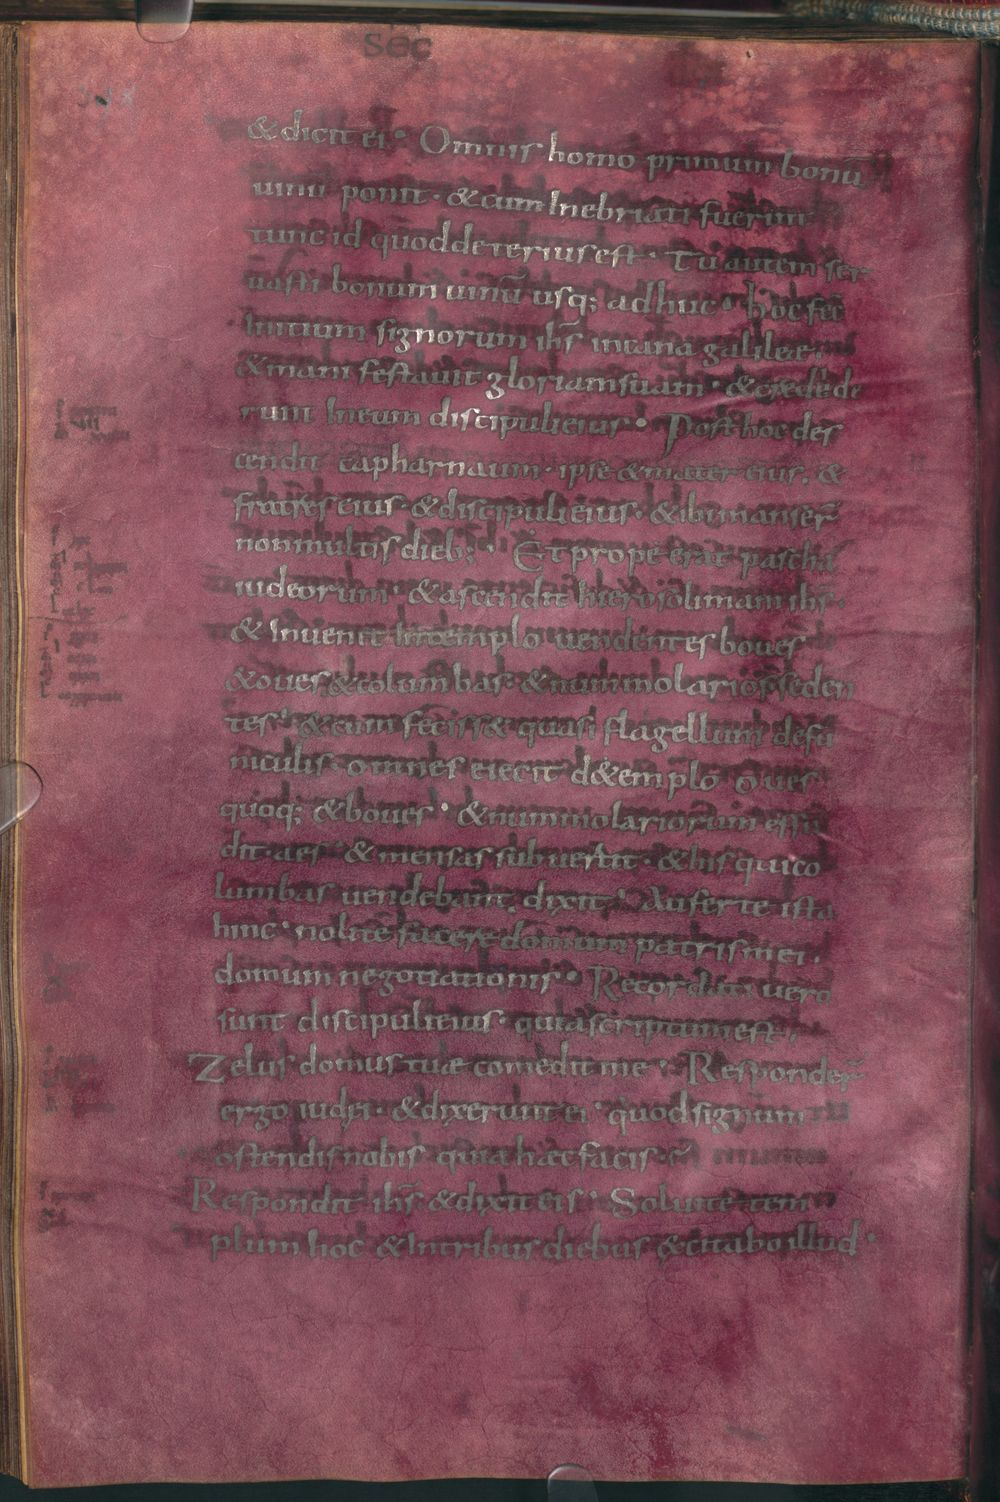 sec
& dicit ei · Omnis homo primum bonū
uinū ponit · & cum Inebriati fuerint
tunc id quod deterius est · Tu autem ser
uasti bonum uinū usq; adhuc · hoc fec̄
Initium signorum ihs̄ incana galileae ·
& manifestauit gloriam suam · & credede
runt Ineum discipuli eius · Post hoc des
cendit capharnaum · ipse & mater eius · &
fratres eius · & discipuli eius · & ibi manser̄
non multis dieb; · Et prope erat pascha
iudeorum · & ascendit hierosolimam ihs̄ ·
& Inuenit Intemplo uendentes boues
& oues & columbas · & nummolarios seden
tes · & cum feciss& quasi flagellum defu
niculis · omnes eiecit d&emplo oues
quoq; & boues · & nummolariorum effu
dit · aes & mensas subuertit · & his qui co
lumbas uendebant · dixit · Auferte ista
hinc · nolite facere domum patris mei ·
domum negotiationis · Recordati uero
sunt discipuli eius · quia scriptum est ·
Zelus domus tuae comedit me · Responder̄
ergo iudei · & dixerunt ei · quod signum
ostendis nobis · quia haec facis ·
Respondit ihs̄ & dixit eis · Soluite tem
plum hoc & Intribus diebus excitabo illud ·